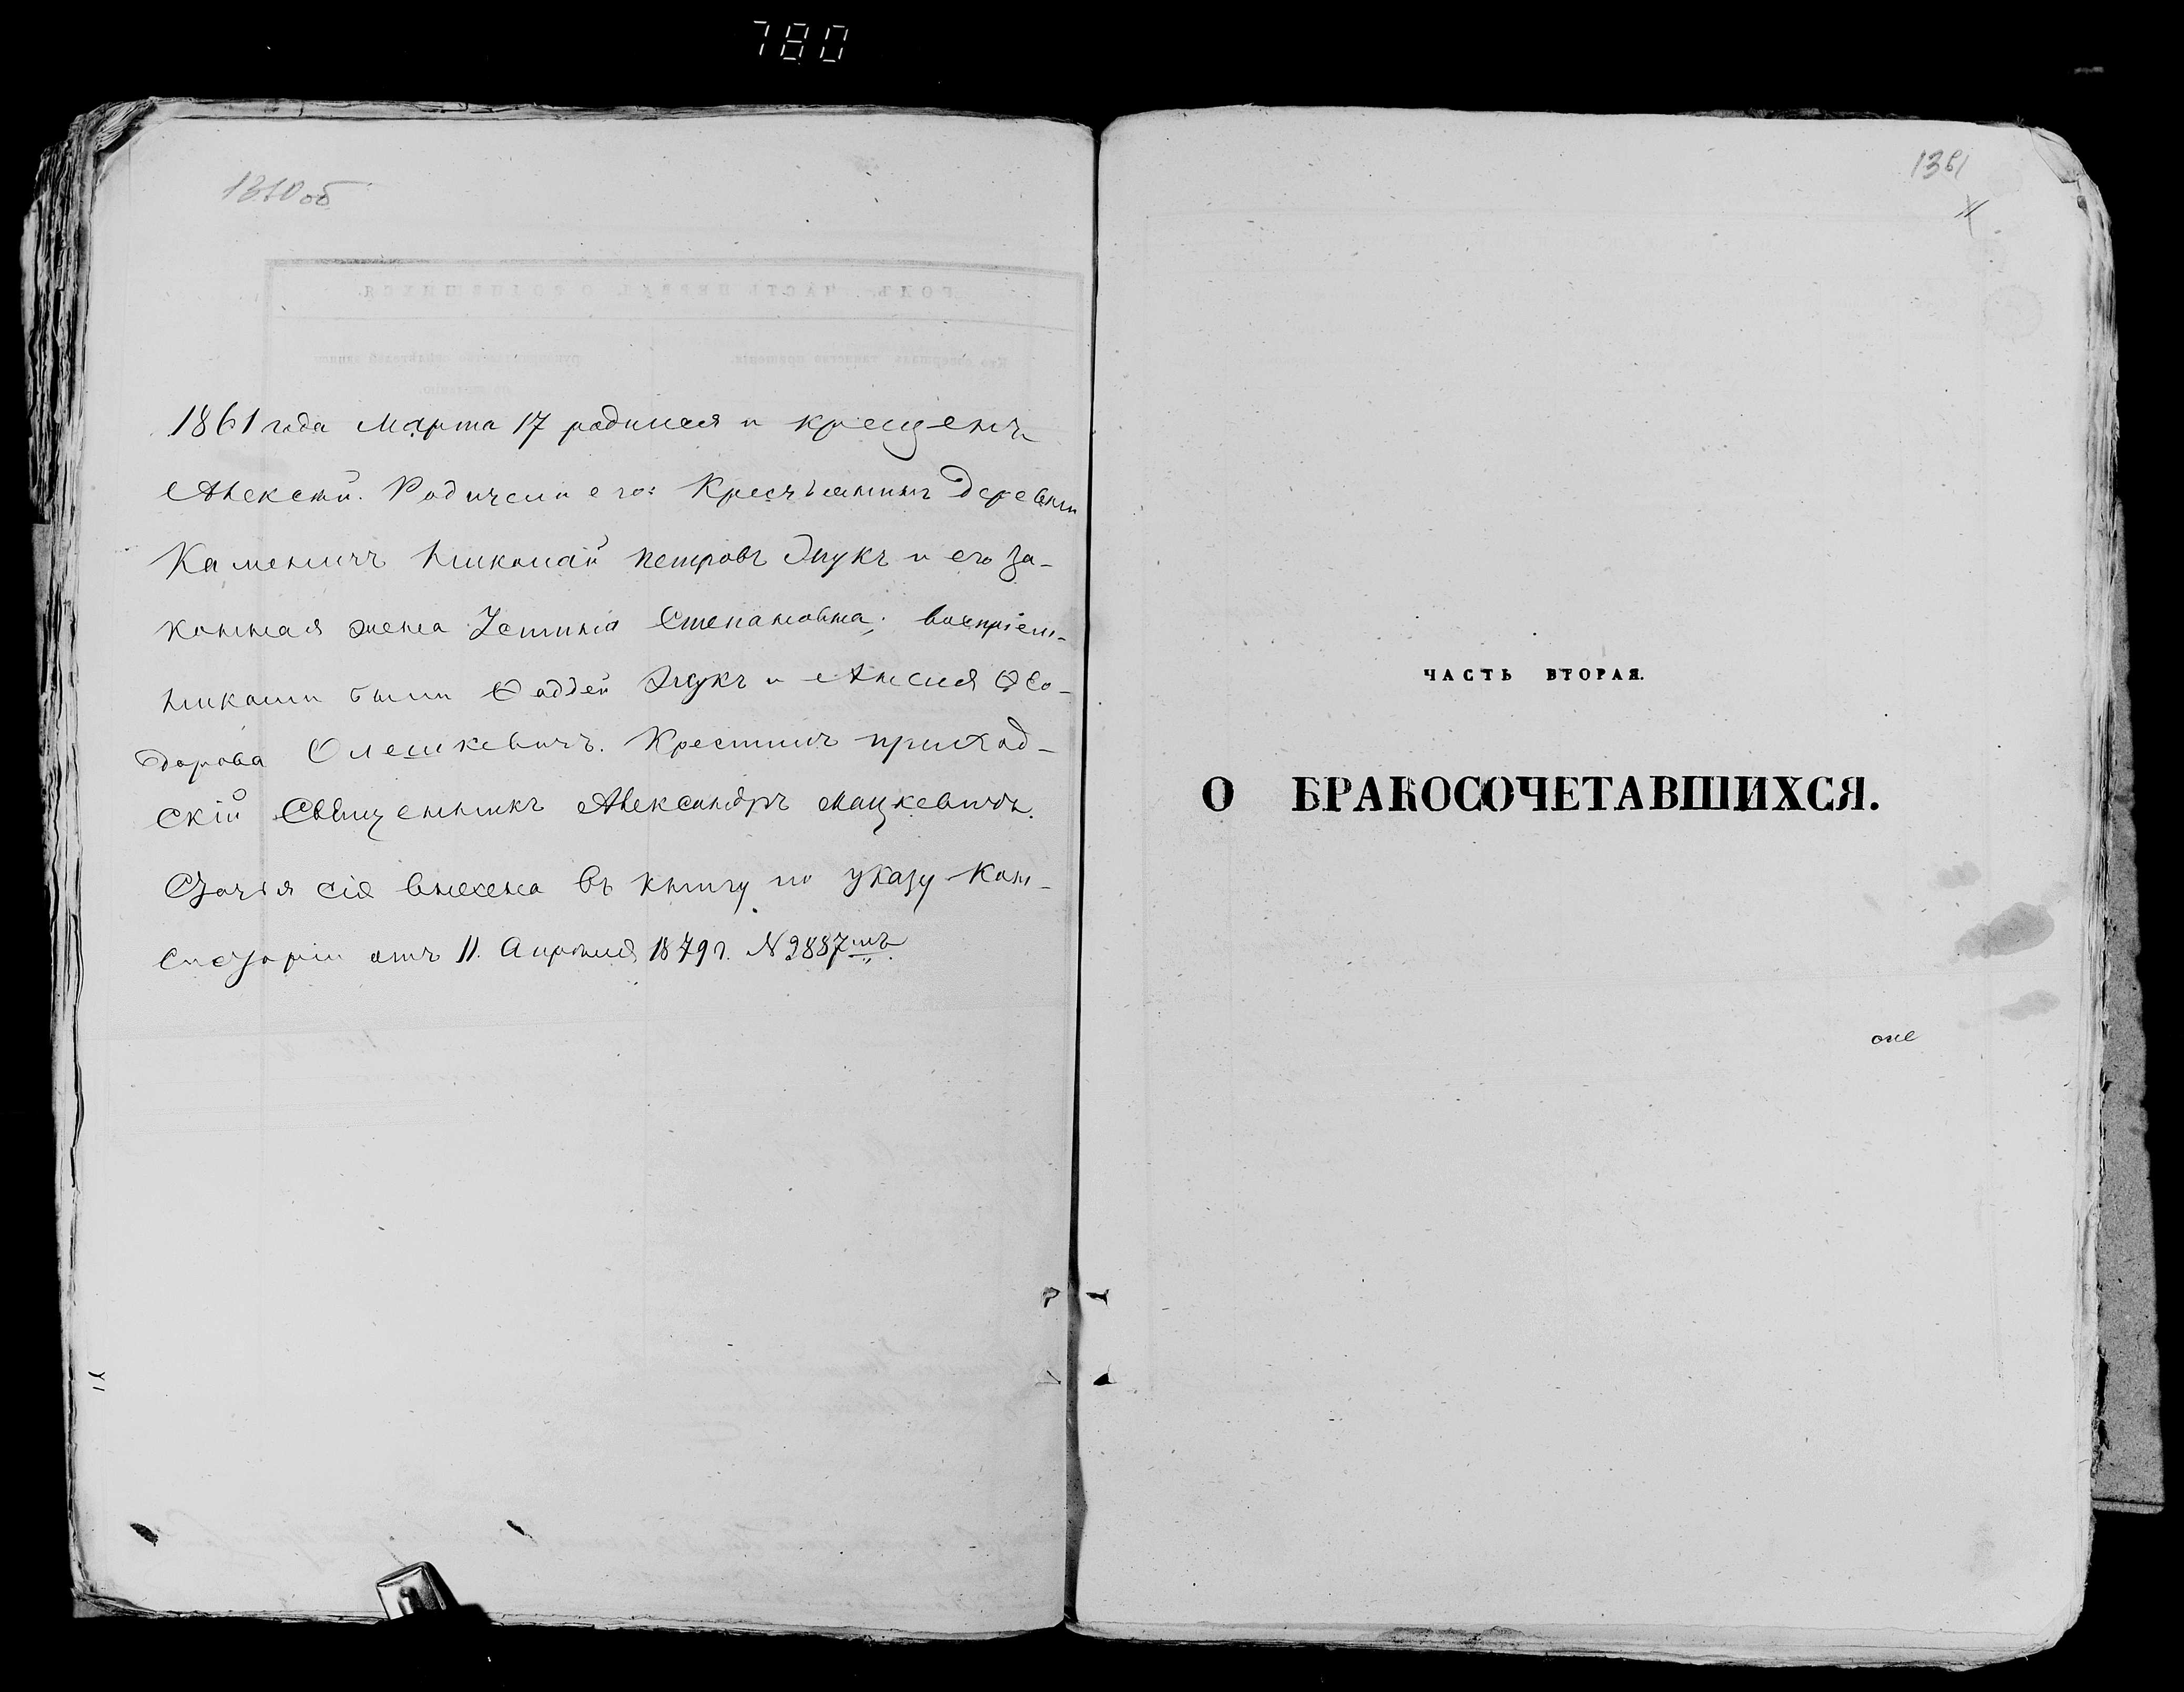 780
1861 года Марта 17 родился и крещенъ
Алексѣй. Родители его: Крестьянинъ деревни
Каменичъ Николай Петровъ Жукъ и его за-
конная жена Устинія Степановна; воспріем-
никами были Ѳаддей Жукъ и Анисія Ѳео-
дорова Олешкевичъ. Крестилъ приход-
скій Священникъ Александръ Мацкевичъ.
Статья сія внесена въ книгу по указу Кон-
систоріи отъ 11. Апрѣля 1879 г. №2887мъ.
1361
ЧАСТЬ ВТОРАЯ.
О БРАКОСОЧЕТАВШИХСЯ.